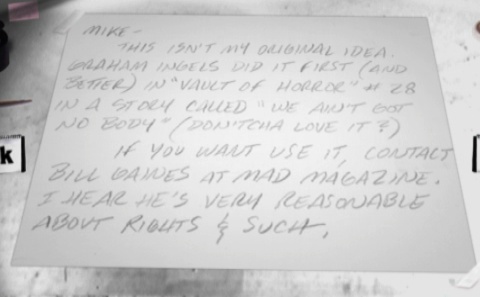 MIKE-
THIS ISN'T MY ORIGINAL IDEA.
GRAHAM INGELS DID IT FIRST (AND
BETTER) IN "VAULT OF HORROR" #28
IN A STORY CALLED "WE AIN'T GOT
NO BODY" (DON'TCHA LOVE IT?)
IF YOU WANT USE IT, CONTACT
BILL GAINES AT MAD MAGAZINE.
I HEAR HE'S VERY REASONABLE
ABOUT RIGHTS & SUCH.
k